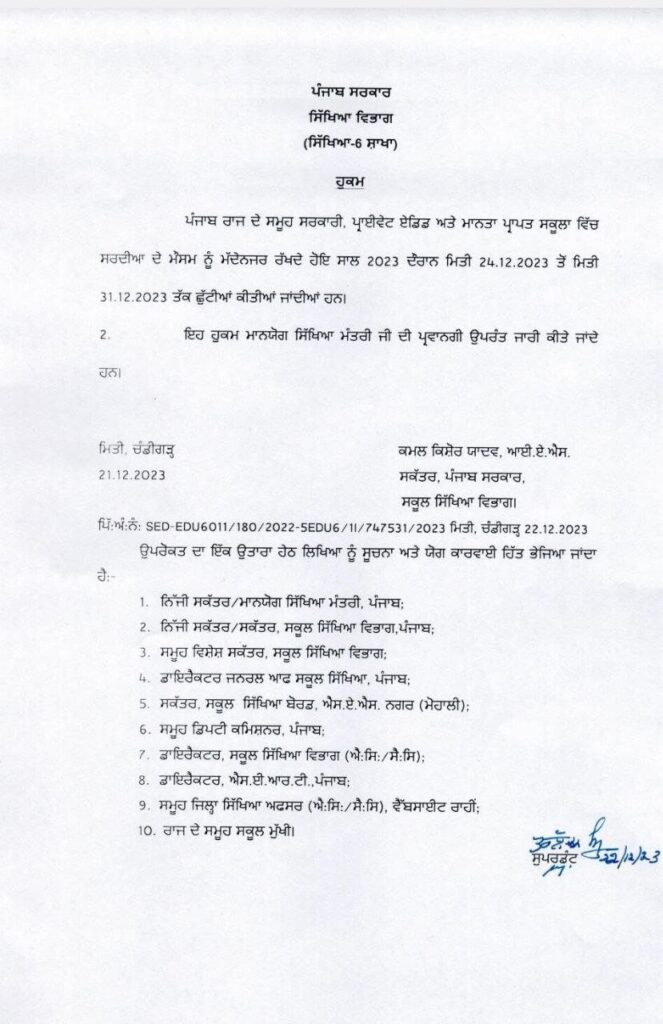 ਪੰਜਾਬ ਸਰਕਾਰ
ਸਿੱਖਿਆ ਵਿਭਾਗ
(ਸਿੱਖਿਆ-6 ਸ਼ਾਖਾ)
ਹੁਕਮ
ਪੰਜਾਬ ਰਾਜ ਦੇ ਸਮੂਹ ਸਰਕਾਰੀ, ਪ੍ਰਾਈਵੇਟ ਏਡਿਡ ਅਤੇ ਮਾਨਤਾ ਪ੍ਰਾਪਤ ਸਕੂਲਾ ਵਿੱਚ
ਸਰਦੀਆ ਦੇ ਮੌਸਮ ਨੂੰ ਮੱਦੇਨਜਰ ਰੱਖਦੇ ਹੋਇ ਸਾਲ 2023 ਦੌਰਾਨ ਮਿਤੀ 24.12.2023 ਤੋਂ ਮਿਤੀ
31.12.2023 ਤੱਕ ਛੁੱਟੀਆਂ ਕੀਤੀਆਂ ਜਾਂਦੀਆਂ ਹਨ।
2. ਇਹ ਹੁਕਮ ਮਾਨਯੋਗ ਸਿੱਖਿਆ ਮੰਤਰੀ ਜੀ ਦੀ ਪ੍ਰਵਾਨਗੀ ਉਪਰੰਤ ਜਾਰੀ ਕੀਤੇ ਜਾਂਦੇ
ਹਨ।
ਮਿਤੀ, ਚੰਡੀਗੜ੍ਹ
21.12.2023
ਕਮਲ ਕਿਸ਼ੋਰ ਯਾਦਵ, ਆਈ.ਏ.ਐਸ.
ਸਕੱਤਰ, ਪੰਜਾਬ ਸਰਕਾਰ,
ਸਕੂਲ ਸਿੱਖਿਆ ਵਿਭਾਗ।
ਪਿੱ:ਅੰ:ਨੰ: SED-EDU6011/180/2022-5EDU6/1I/747531/2023 ਮਿਤੀ, ਚੰਡੀਗੜ੍ਹ 22.12.2023
ਉਪਰੋਕਤ ਦਾ ਇੱਕ ਉਤਾਰਾ ਹੇਠ ਲਿਖਿਆ ਨੂੰ ਸੂਚਨਾ ਅਤੇ ਯੋਗ ਕਾਰਵਾਈ ਹਿੱਤ ਭੇਜਿਆ ਜਾਂਦਾ
ਹੈ:-
1. ਨਿੱਜੀ ਸਕੱਤਰ/ਮਾਨਯੋਗ ਸਿੱਖਿਆ ਮੰਤਰੀ, ਪੰਜਾਬ;
2. ਨਿੱਜੀ ਸਕੱਤਰ/ਸਕੱਤਰ, ਸਕੂਲ ਸਿੱਖਿਆ ਵਿਭਾਗ,ਪੰਜਾਬ;
3. ਸਮੂਹ ਵਿਸ਼ੇਸ਼ ਸਕੱਤਰ, ਸਕੂਲ ਸਿੱਖਿਆ ਵਿਭਾਗ;
4. ਡਾਇਰੈਕਟਰ ਜਨਰਲ ਆਫ ਸਕੂਲ ਸਿੱਖਿਆ, ਪੰਜਾਬ;
5. ਸਕੱਤਰ, ਸਕੂਲ ਸਿੱਖਿਆ ਬੋਰਡ, ਐਸ.ਏ.ਐਸ. ਨਗਰ (ਮੋਹਾਲੀ);
6. ਸਮੂਹ ਡਿਪਟੀ ਕਮਿਸ਼ਨਰ, ਪੰਜਾਬ;
7. ਡਾਇਰੈਕਟਰ, ਸਕੂਲ ਸਿੱਖਿਆ ਵਿਭਾਗ (ਐ:ਸਿ:/ਸੈ:ਸਿ);
8. ਡਾਇਰੈਕਟਰ, ਐਸ.ਈ.ਆਰ.ਟੀ.,ਪੰਜਾਬ;
9. ਸਮੂਹ ਜਿਲ੍ਹਾ ਸਿੱਖਿਆ ਅਫਸਰ (ਐ:ਸਿ:/ਸੈ:ਸਿ), ਵੈੱਬਸਾਈਟ ਰਾਹੀਂ;
10. ਰਾਜ ਦੇ ਸਮੂਹ ਸਕੂਲ ਮੁੱਖੀ।
ਸੁਪਰਡੰਟ 22/12/23